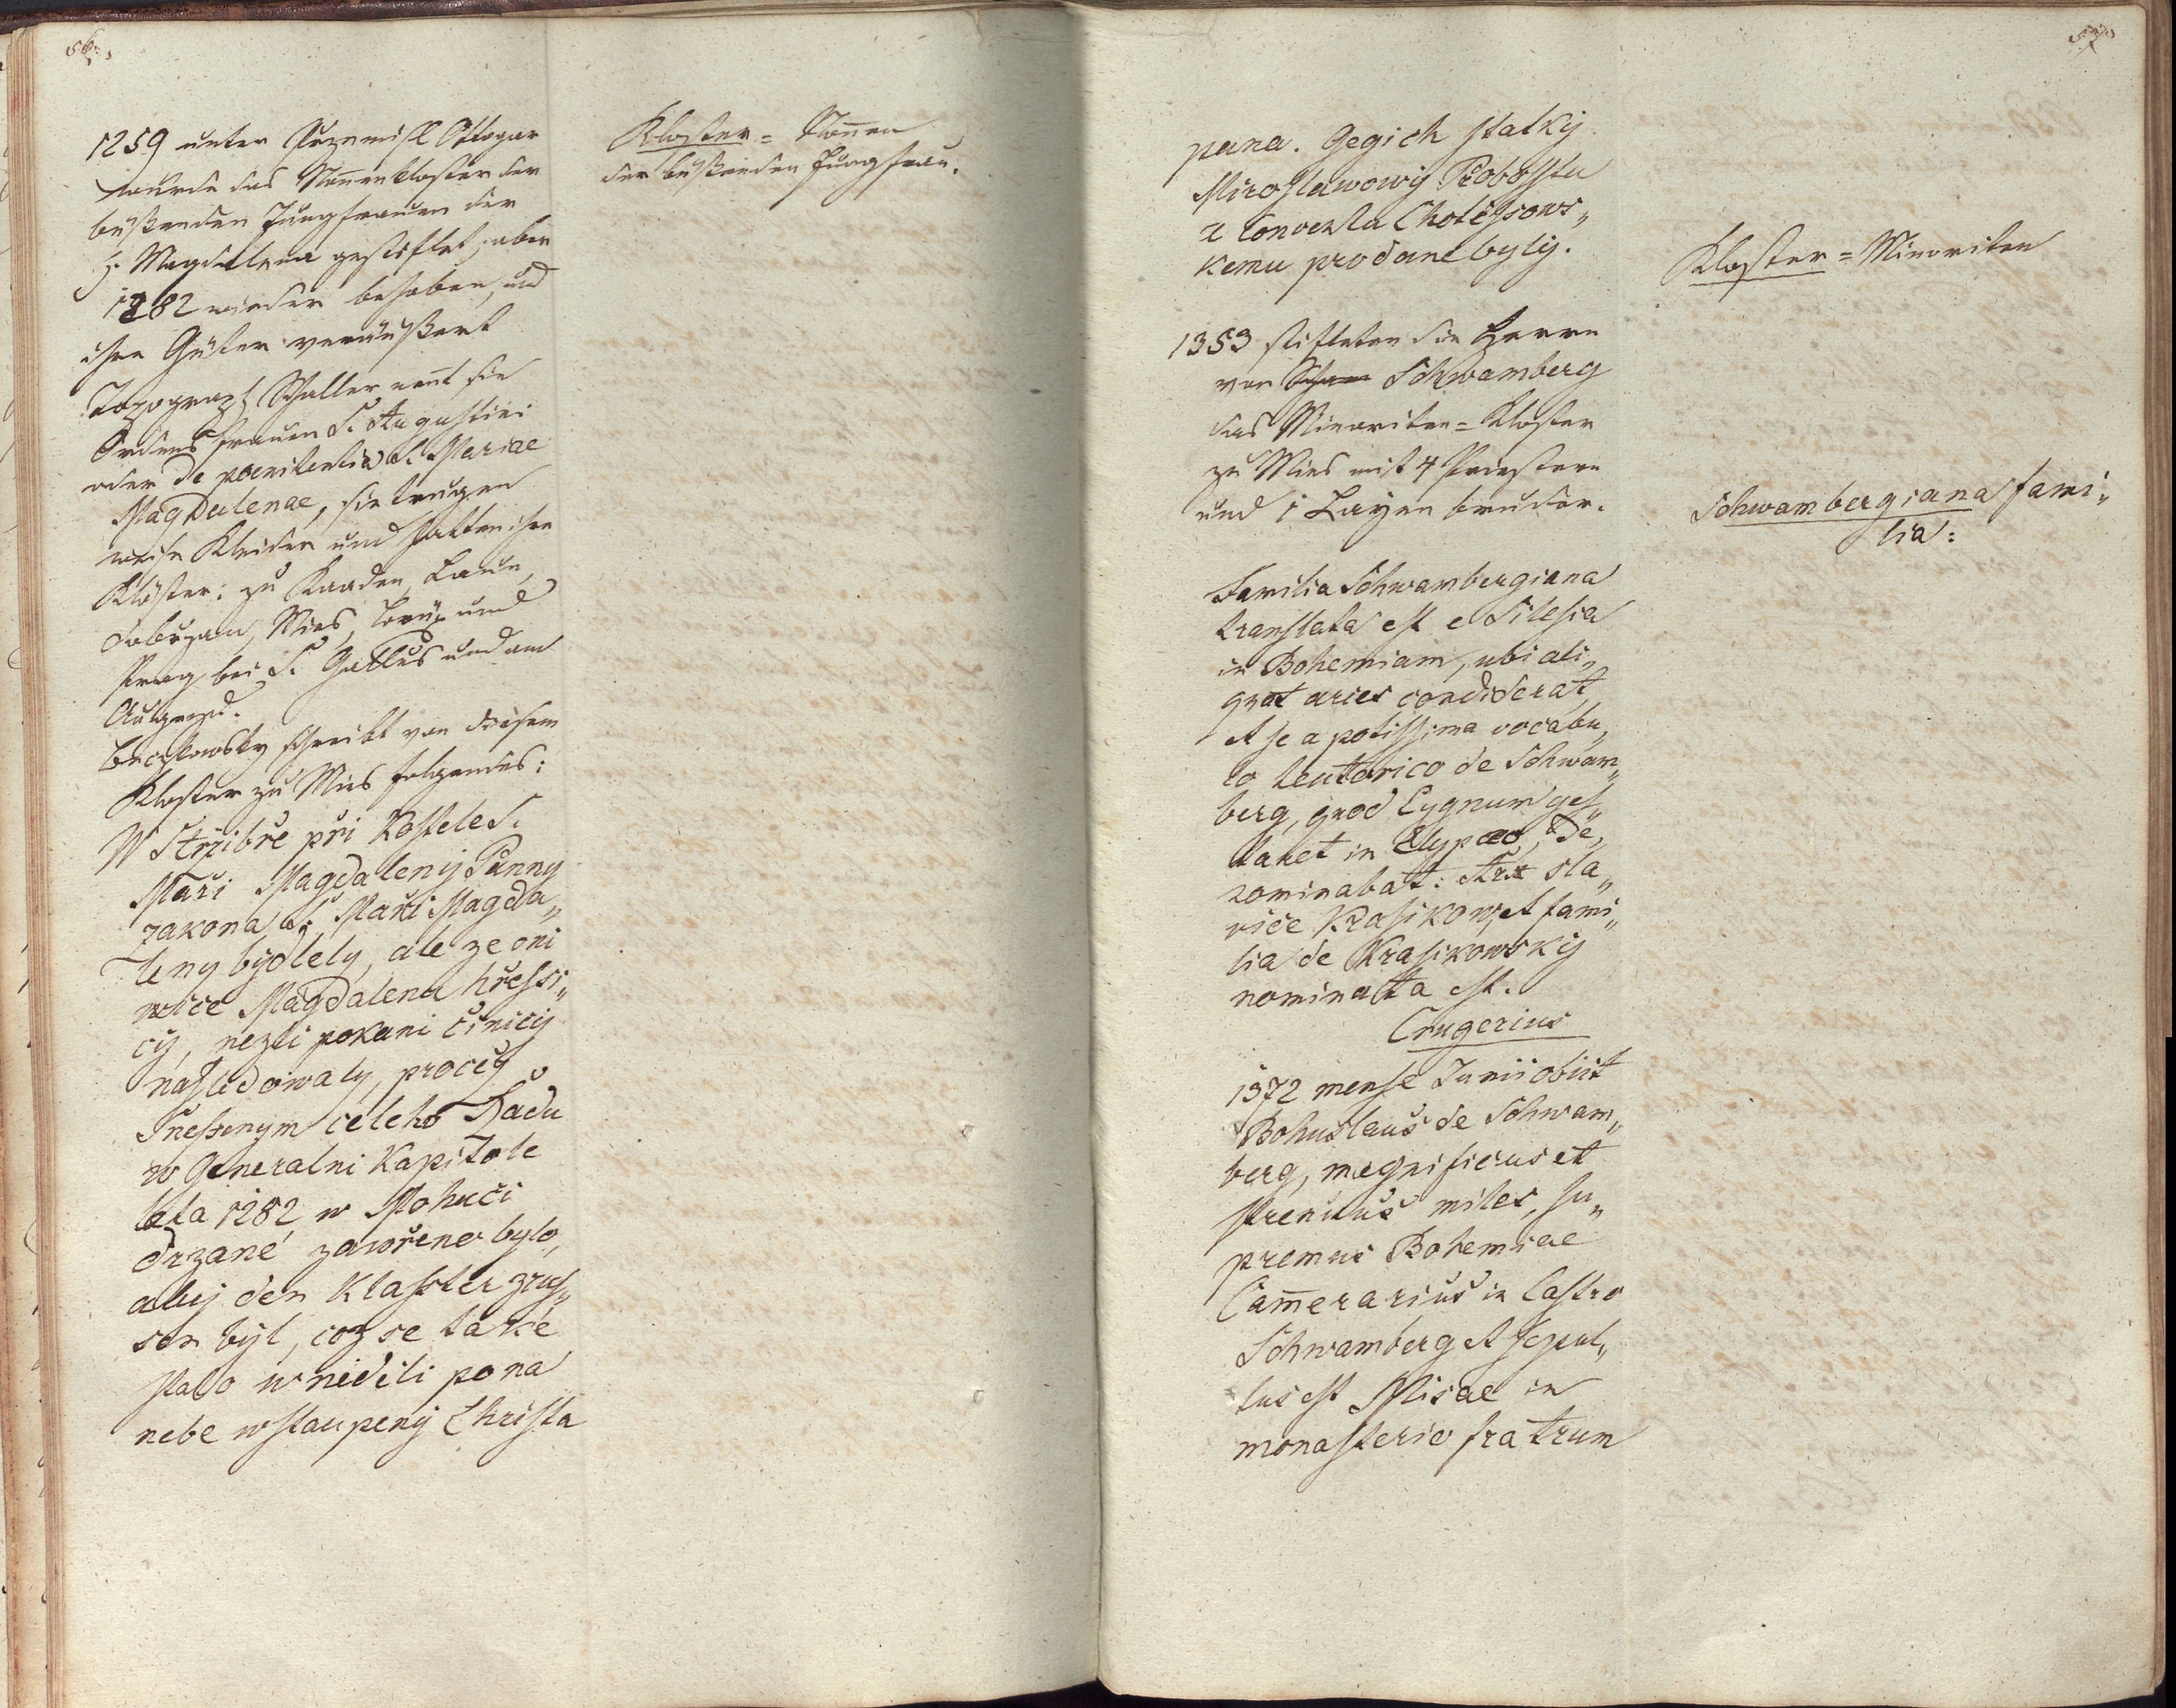 56.
1259 unter Przemisl Ottogar
wurde das Nonnenkloster der
büßenden Jungfrauen der
h. Magdalena gestiftet, aber
1282 wieder behoben, und
ihre Güter veräußert
Topograph Schaller nent sie
Ordens Frauen S. Augustini
oder de poenitentia S. Mariae
Magdalenae, sie trugen
weise Kleider und hatten ihre
Klöster: zu Kaaden, Laun,
Dobrzan, Mies, Brüx und
Prag bei S. Gallus und am
Augezd.
Beczkowsky schreibt von diesem
Kloster zu Mies folgendes:
W Strzibře při Kostele S.
Maři Magdaleny Panny
zakona S. Maři Magda„
leny bydlely, ale ze oni
wice Magdalenu hřessi„
cy, nezli pokani činicy
nasledowaly, procež
Snessenym celeho Řadu
w Generalni Kapitole
leta 1282 w Mohuči
drzané zawřeno bylo,
aby den Klasster zrus„
sen byl, coz se take
stalo w neděli po na
nebe wstaupeny Christa
Kloster = Nonnen
der büßenden Jungfrau.
57
pana. Gegich statky
Miroslawowy Probosstu
a Conventu Chotěssows„
kemu prodane byly.
1353 stifteten die Herrn
von Schwamberg
das Minoriten = Kloster
zu Mies mit 4 Priestern
und 1 Layen bruder.
Familia Schwambergiana
translata est e Silesia
in Bohemiam, ubi ali„
quot arces condiderat,
et se a potissima vocabu„
lo teutonico de Schwam„
berg, quod Cygnum ges„
taret in Clypeo, De„
nominabat: Arx sla„
vice Krasikow, et fami„
lia de Krasikowsky
nominata est.
Crugerius
1372 mense Junii obiit
Bohuslaus de Schwam„
berg, magnificus et
strenuus miles, su„
premus Bohemiae
Cam̄erarius in Castro
Schwamberg et sepul„
tus est Misae in
monasterio fratrum
Kloster = Minoriten
Schwambergiana fami„
lia: